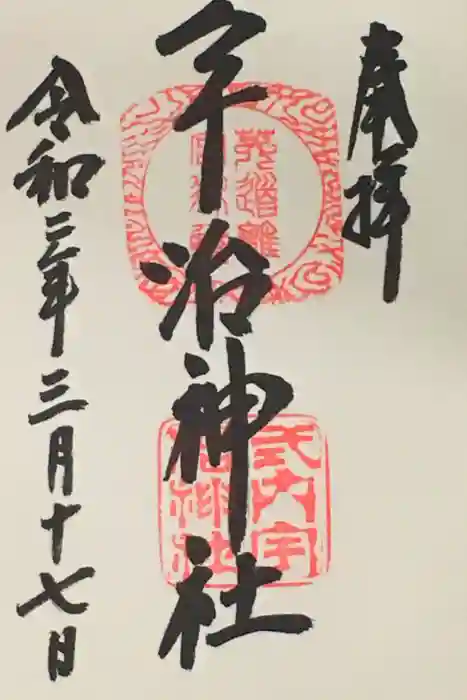 奉拝
菟道離
宇治神社
式内宇
治神社
令和三年三月十七日